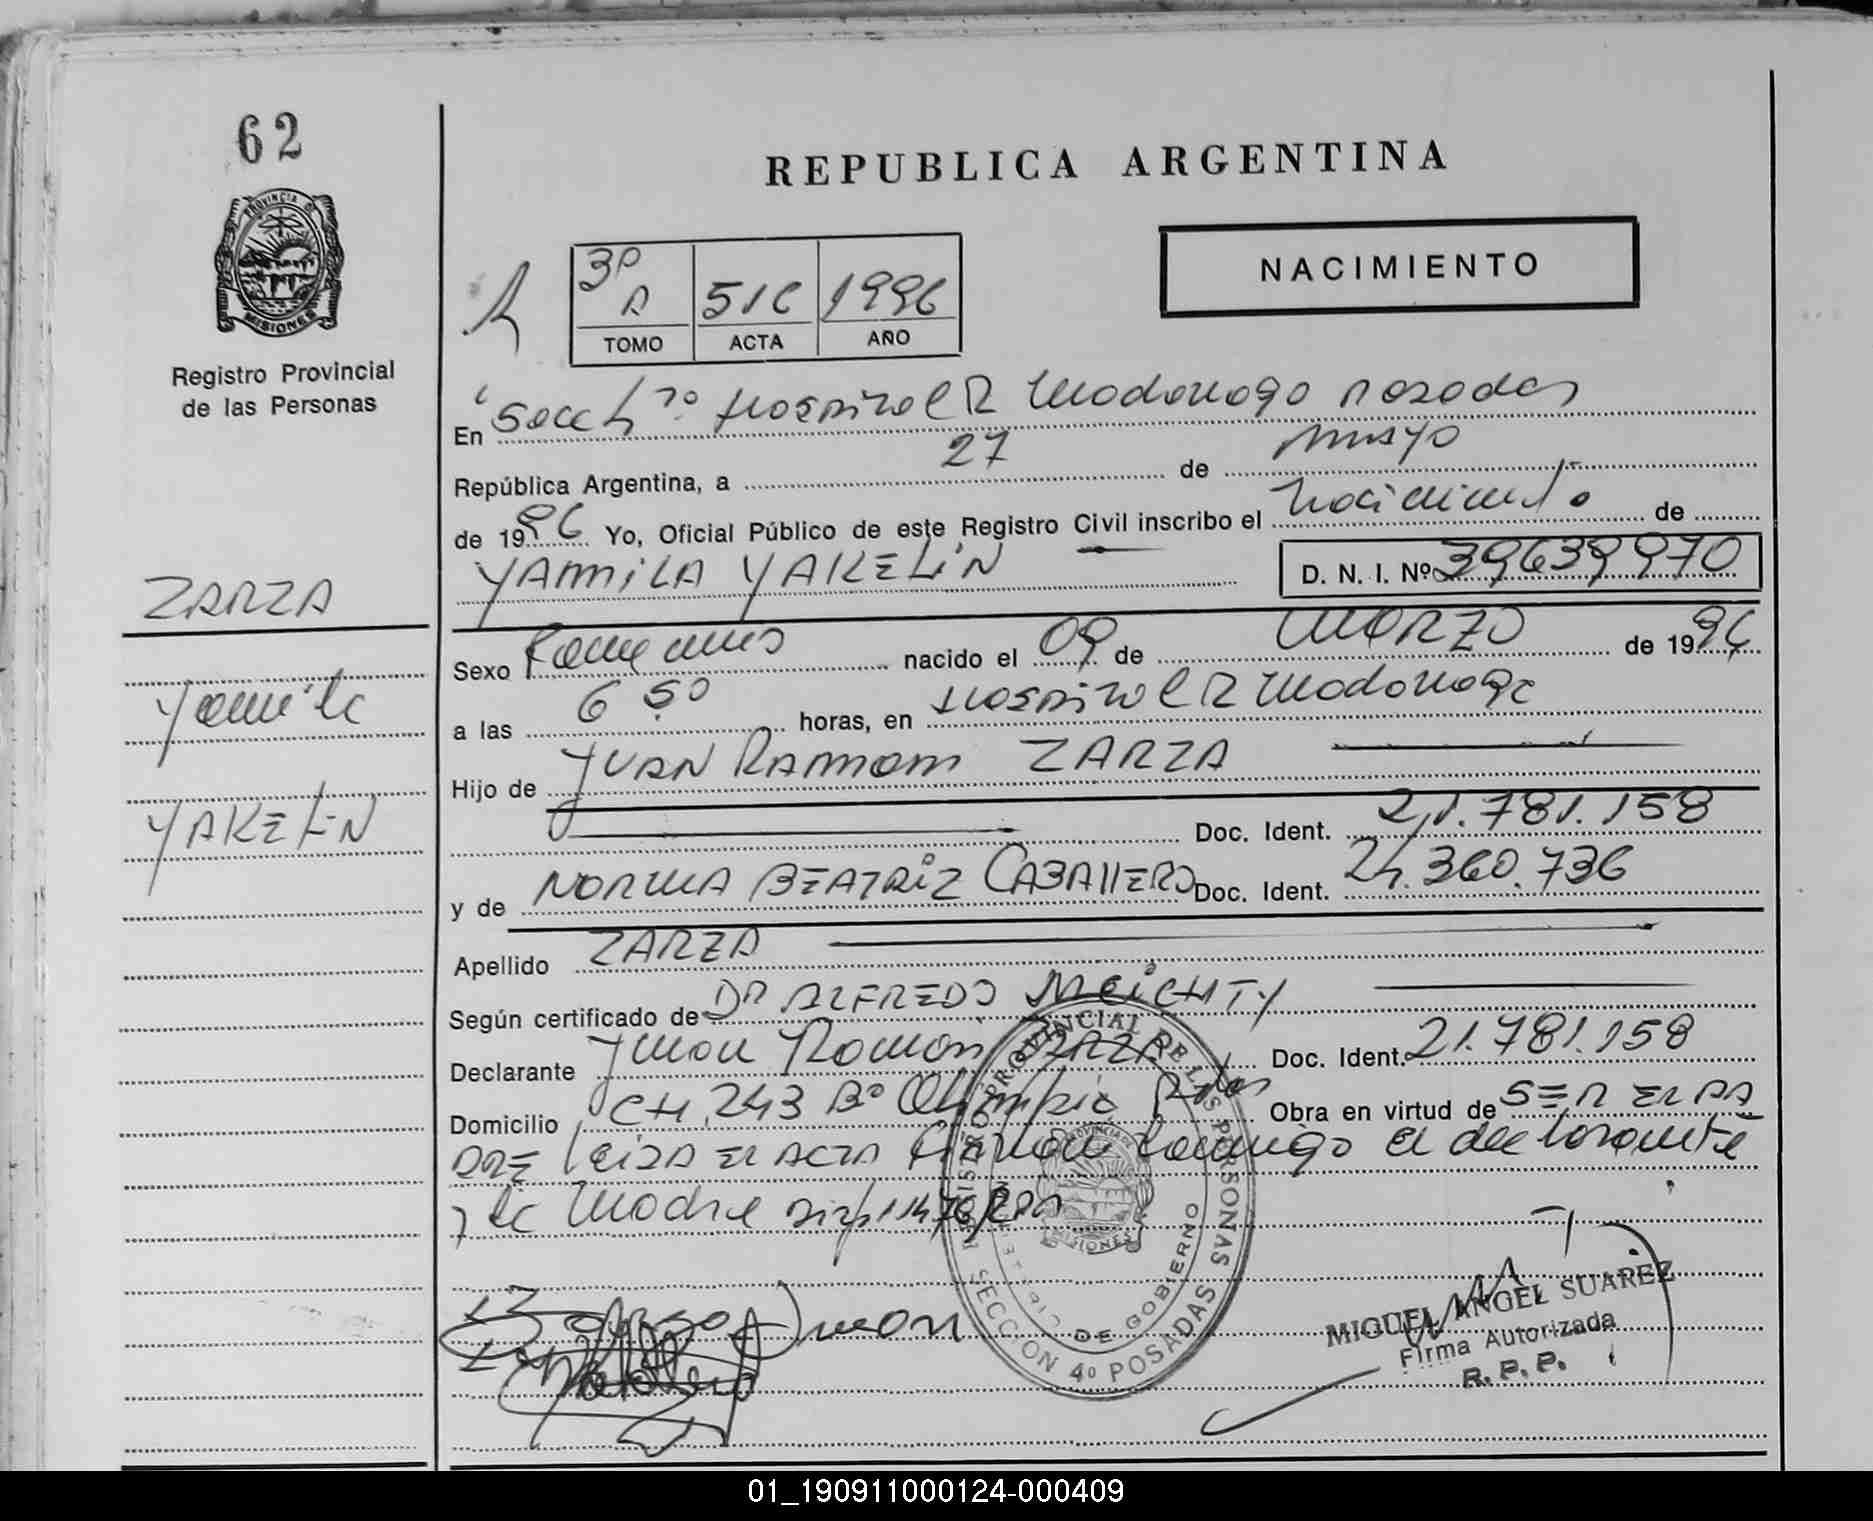 62
REPUBLICA ARGENTINA
NACIMIENTO
PROVINCIA DE MISIONES
Registro Provincial
de las Personas
3º A 516 1996
TOMO ACTA AÑO
En Secc 4º Hospital R Madariaga Posadas
República Argentina, a 27 de mayo
de 1996 Yo, Oficial Público de este Registro Civil inscribo el nacimiento de
YAMILA YAKELIN D. N. I. Nº 39639970
ZARZA
Yamila
YAKELIN
Sexo Femenino nacido el 09 de MARZO de 1996
a las 6 50 horas, en Hospital R Madariaga
Hijo de JUAN RAMON ZARZA
Doc. Ident. 21.781.158
y de NORMA BEATRIZ CABALLERO Doc. Ident. 24.360.736
Apellido ZARZA
Según certificado de DR ALFREDO NEICHTY
Declarante Juan Ramon ZARZA Doc. Ident. 21.781.158
Domicilio CH. 243 Bº Olimpia Pdas Obra en virtud de SER EL PA
DRE Leida EL ACTA firman conmigo el declarante
y la Madre
REGISTRO PROVINCIAL DE LAS PERSONAS
PROVINCIA DE MISIONES
MINISTERIO DE GOBIERNO
SECCION 4º POSADAS
Zarza Juan
MIGUEL ANGEL SUAREZ
Firma Autorizada
R. P. P.
01_190911000124-000409